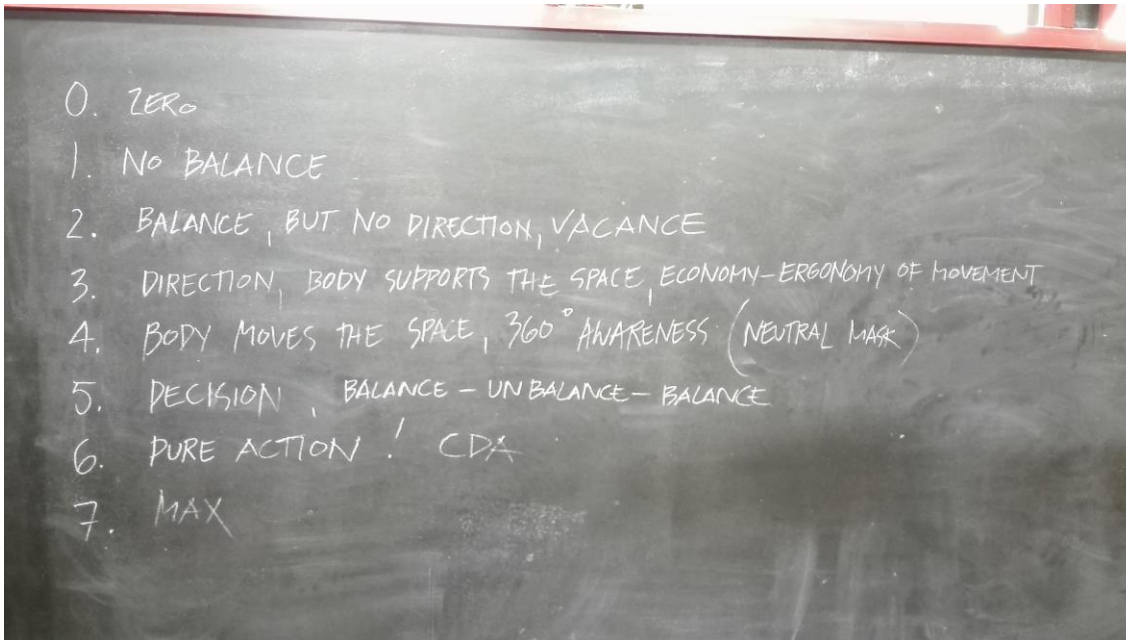 0. ZERO
1. NO BALANCE
2. BALANCE, BUT NO DIRECTION, VACANCE
3. DIRECTION, BODY SUPPORTS THE SPACE, ECONOMY-ERGONOMY OF MOVEMENT
4. BODY MOVES THE SPACE, 360° AWARENESS (NEUTRAL MASK)
5. DECISION, BALANCE - UNBALANCE - BALANCE
6. PURE ACTION! CDA
7. MAX